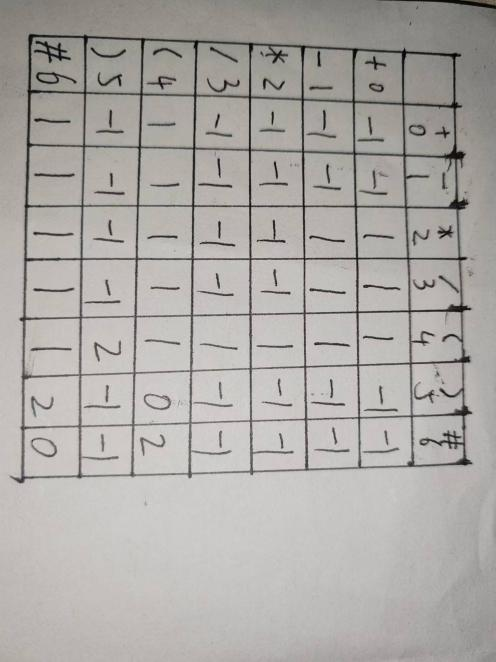 + - * / ( ) #
0 1 2 3 4 5 6
+ 0 -1 -1 1 1 1 -1 -1
- 1 -1 -1 1 1 1 -1 -1
* 2 -1 -1 -1 -1 1 -1 -1
/ 3 -1 -1 -1 -1 1 -1 -1
( 4 1 1 1 1 1 0 2
) 5 -1 -1 -1 -1 2 -1 -1
# 6 1 1 1 1 1 2 0